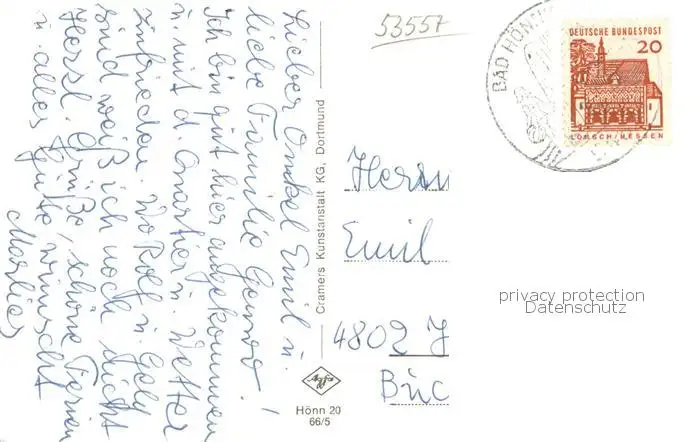 53557
BAD HÖN
DEUTSCHE BUNDESPOST
20
LORSCH/HESSEN
Lieber Onkel Emil u.
liebe Familie !
Ich bin gut hier angekommen
u. mit d. Quartier u. Wetter
zufrieden. Wo Rolf u. Gely
sind weiß ich noch nicht
Herzl. Grüße, schöne Ferien
u. alles Gute wünscht
Marlies
Cramers Kunstanstalt KG, Dortmund
Herrn
Emil
4802
Agfa
Hönn 20
66/5
privacy protection
Datenschutz